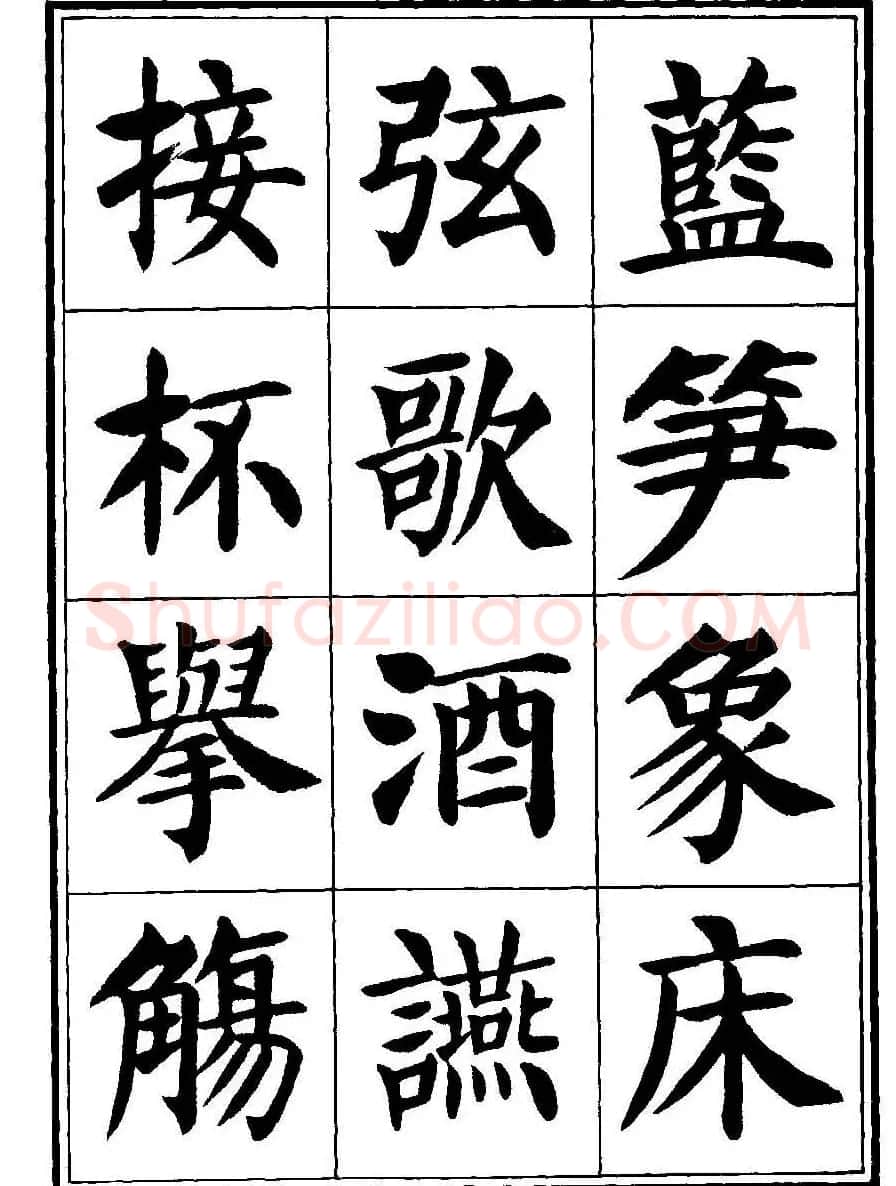 藍笋象床
弦歌酒讌
接杯舉觴
Shufaziliao.COM